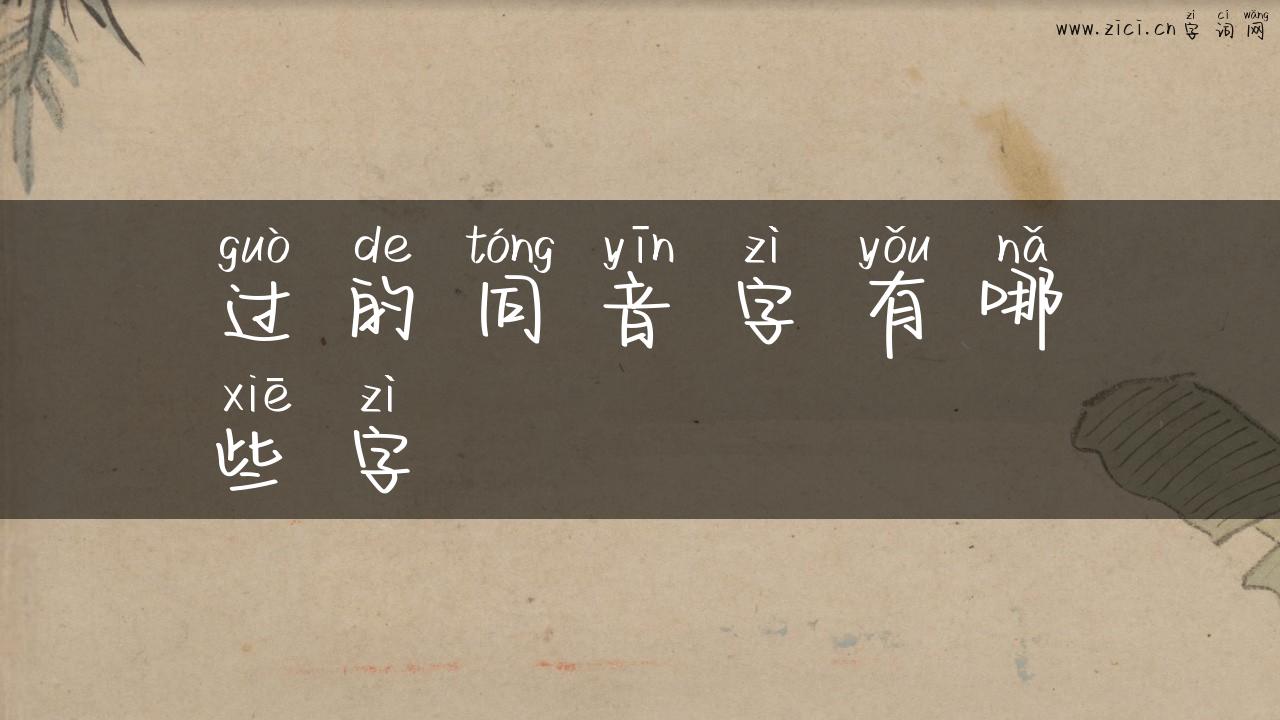 zì cí wǎng
www.zici.cn 字词网
guò de tóng yīn zì yǒu nǎ
过的同音字有哪
xiē zì
些字